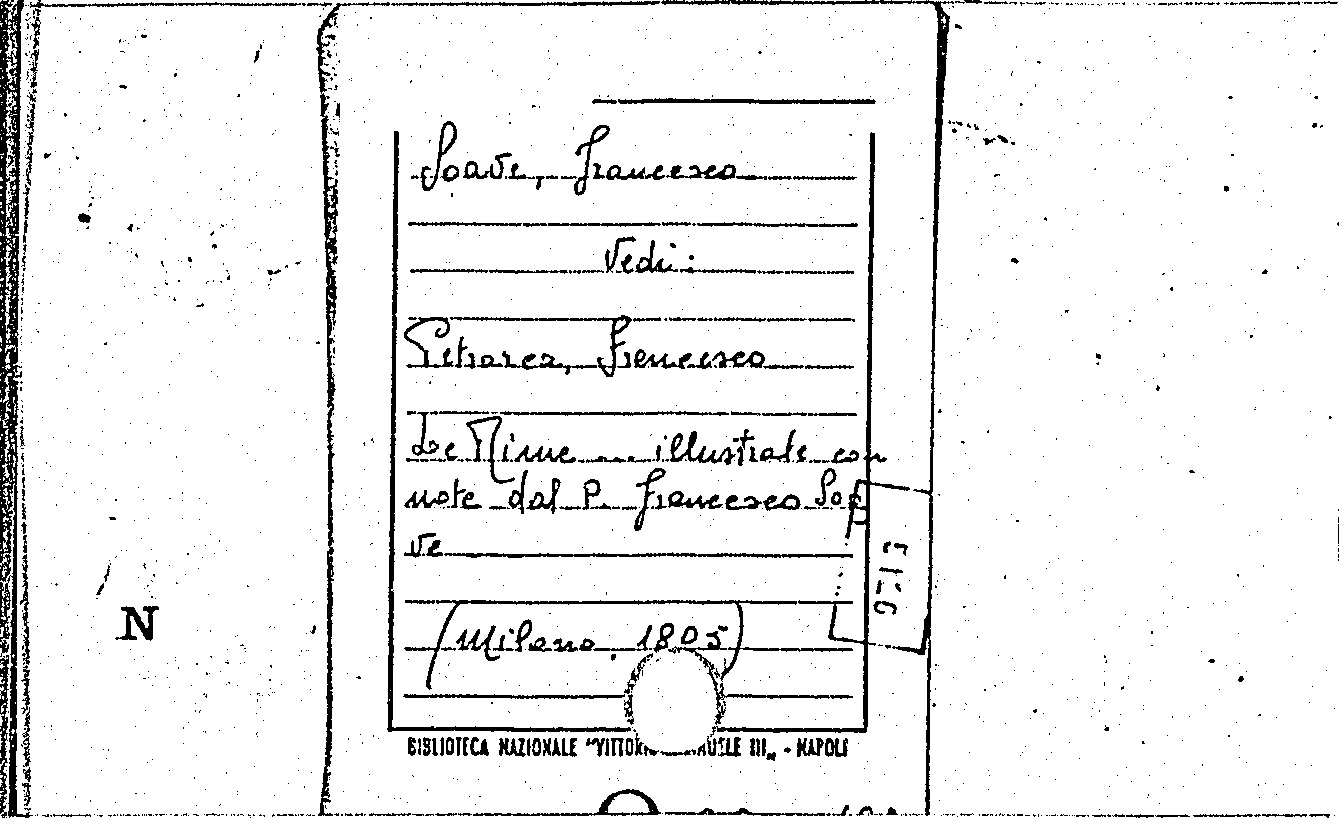 Soave, Francesco
Vedi:
Petrarca, Francesco
Le Rime ... illustrate con
note dal P. Francesco Soa
ve
(Milano, 1805)
N
BIBLIOTECA NAZIONALE "VITTORIO III„ - NAPOLI